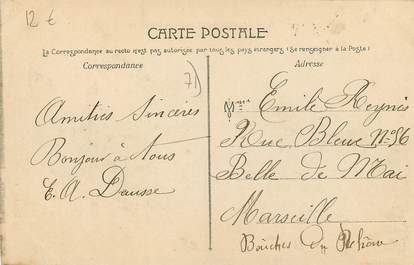 12 €
CARTE POSTALE
La Correspondance au recto n'est pas autorisée par tous les pays étrangers (Se renseigner à la Poste)
Correspondance
Adresse
71
Amitiés Sincères
Bonjour à tous
E. A. Dausse
Emile Reynis
Rue Bleue N° 86
Belle de Mai
Marseille
Bouches du Rhône